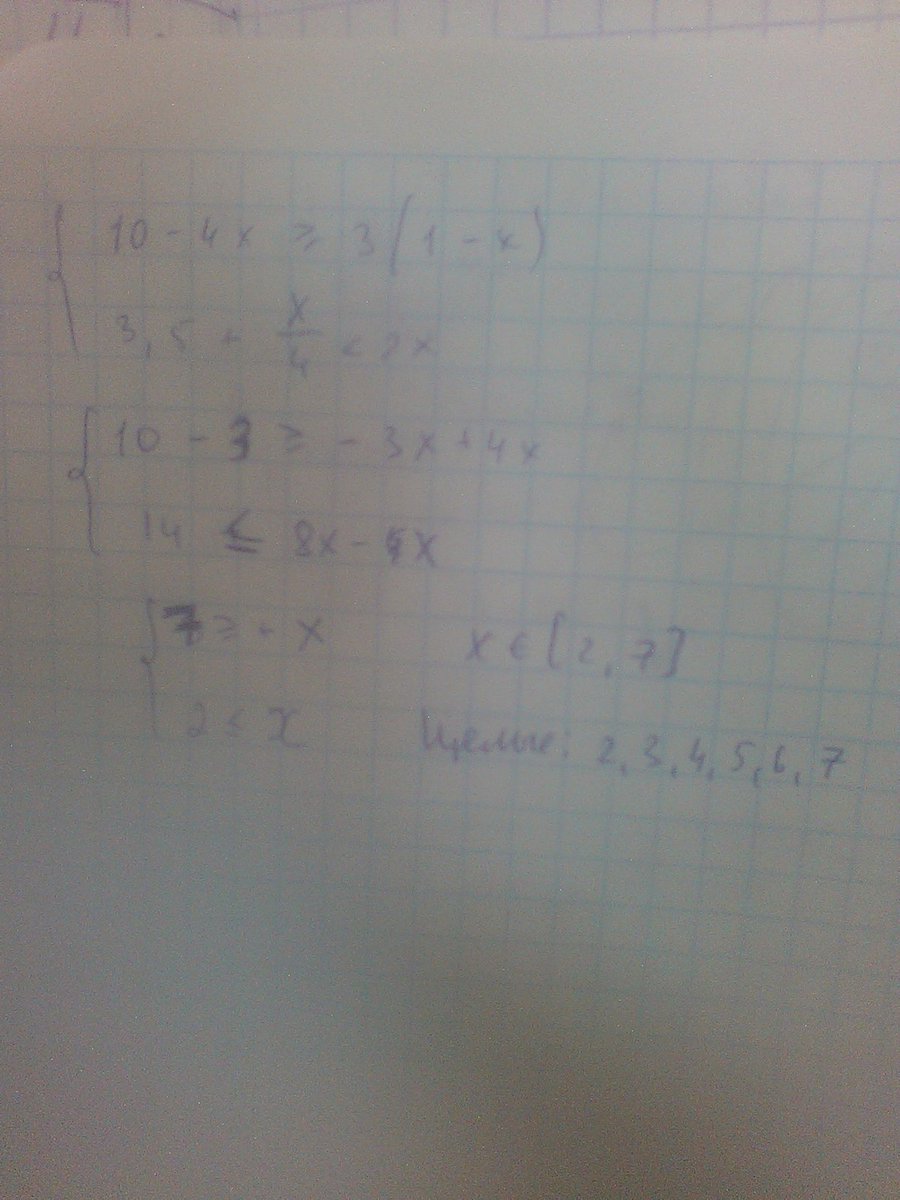 10 - 4x ≥ 3(1 - x)
3,5 + x/4 < 2x
10 - 3 ≥ - 3x + 4x
14 ≤ 8x - x
7 ≥ - x
x ∈ [2, 7]
2 ≤ x
Целые: 2, 3, 4, 5, 6, 7